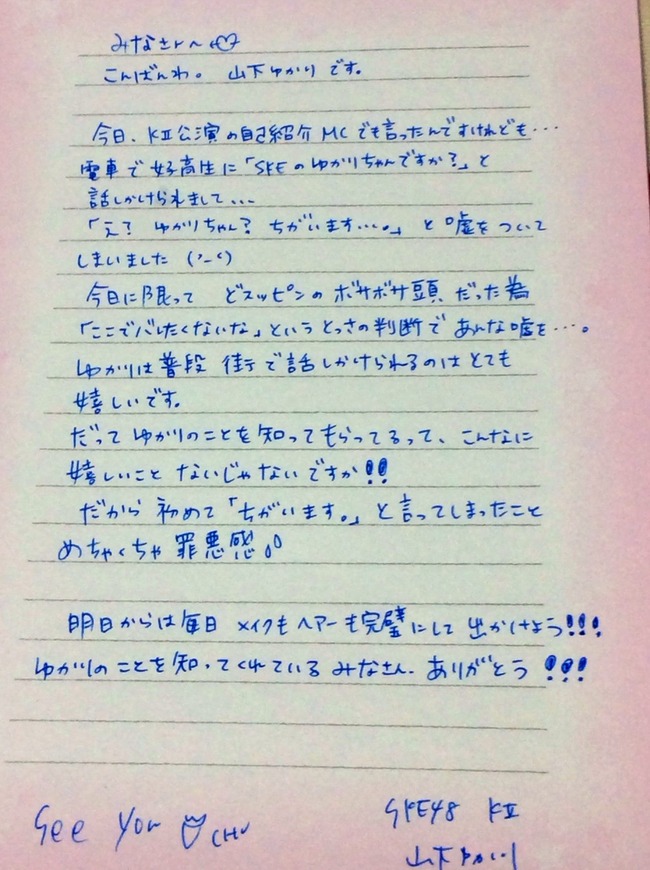 みなさん〜♡
こんばんわ。 山下ゆかりです。
今日、KⅡ公演の自己紹介MCでも言ったんですけれども…
電車で女子高生に「SKEのゆかりちゃんですか?」と
話しかけられまして…
「え? ゆかりちゃん? ちがいます…。」と嘘をついて
しまいました ('-')
今日に限って どスッピンのボサボサ頭だった為
「ここでバレたくないな」というとっさの判断であんな嘘を…。
ゆかりは普段 街で話しかけられるのはとても
嬉しいです。
だってゆかりのことを知ってもらってるって、こんなに
嬉しいことないじゃないですか!!
だから 初めて「ちがいます。」と言ってしまったこと
めちゃくちゃ罪悪感
明日からは毎日 メイクもヘアーも完璧にして出かけよう!!!
ゆかりのことを知ってくれているみなさん、ありがとう!!!
See you CHU
SKE48 KⅡ
山下ゆかり